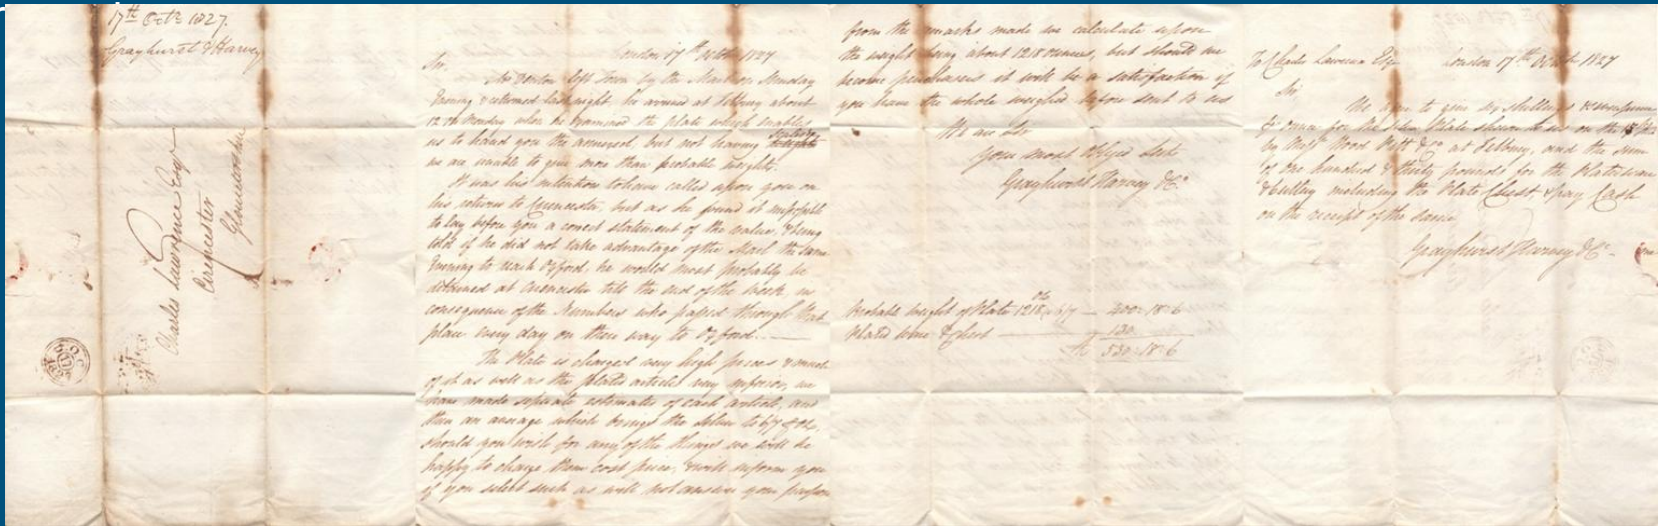 17th Octr 1827.
Grayhurst & Harvey
Charles Lawrence Esqr
Cirencester
Gloucestershire
London 17th Octr 1827
Sir,
Mr Denton left town by the Mail on Monday
Evening & returned last night, he arrived at Tetbury about
12 on Monday when he examined the plate which enables
us to hand you the annexed, but not having scales &
weights
we are unable to give more than probable weights.
It was his intention to have called upon you on
his return to Cirencester, but as he found it impossible
to lay before you a correct statement of the value, & being
told if he did not take advantage of the Mail the same
Evening to reach Oxford, he would most probably be
detained at Cirencester till the end of the Week, in
consequence of the Numbers who passed through that
place every day on their way to Oxford. —
The Plate is charged very high prices & much
of it as well as the plated articles very inferior, we
have made separate estimates of each article, and
then an average which brings the Silver to 6/7 ℔ oz.
should you wish for any of the things we will be
happy to charge them cost price, & will inform you
if you select such as will not answer your purpose
from the remarks made we calculate upon
the weight being about 1218 ounces, but should we
become purchasers it will be a satisfaction if
you have the whole weighed before sent to us
We are Sir
Your most Obligd Servts
Grayhurst Harvey & Co
Probable weight of Plate 1218 oz 6/7 — 400.18.6
Plated ware & Chest — 130
£ 530.18.6
To Charles Lawrence Esqr London 17th Octr 1827
Sir
We agree to give six shillings & sevenpence
℔ ounce for the Silver Plate shewn to us on the 15 
by Messrs Wood Pitt & Co at Tetbury, and the sum
of One hundred & thirty pounds for the Plated ware
& Cutlery including the Plate Chest, & pay Cash
on the receipt of the same
Grayhurst Harvey & Co